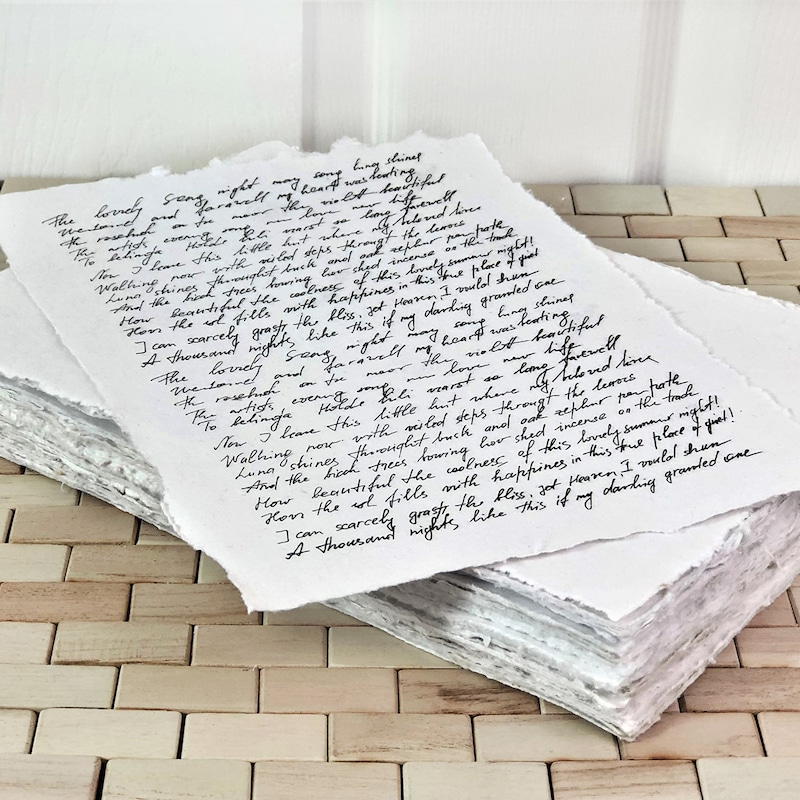 The lovely Song night may song luna shines
Welcomel and farewell my heart was beating
the rosebush on the moor the violett beautiful
The artists evening song new love new life
To belinda Holde Lili warst so long farewell
Now I leave this little hut where my beloved lives
Walking now with veiled steps through the leaves
Luna shines throught buck and oak zephur path
And the birch trees bowing how shed incense on the track
How beautiful the coolness of this lovely summer night!
How the soul fills with happiness in this true place of quiet!
I can scarcely grasp the bliss, yet Heaven I would shun
A thousand nights like this if my darling granted one
The lovely Song night may song luna shines
Welcomel and farewell my heart was beating
the rosebush on the moor the violett beautiful
The artists evening song new love new life
To belinda Holde Lili warst so long farewell
Now I leave this little hut where my beloved lives
Walking now with veiled steps through the leaves
Luna shines throught buck and oak zephur path
And the birch trees bowing how shed incense on the track
How beautiful the coolness of this lovely summer night!
How the soul fills with happiness in this true place of quiet!
I can scarcely grasp the bliss, yet Heaven I would shun
A thousand nights like this if my darling granted one